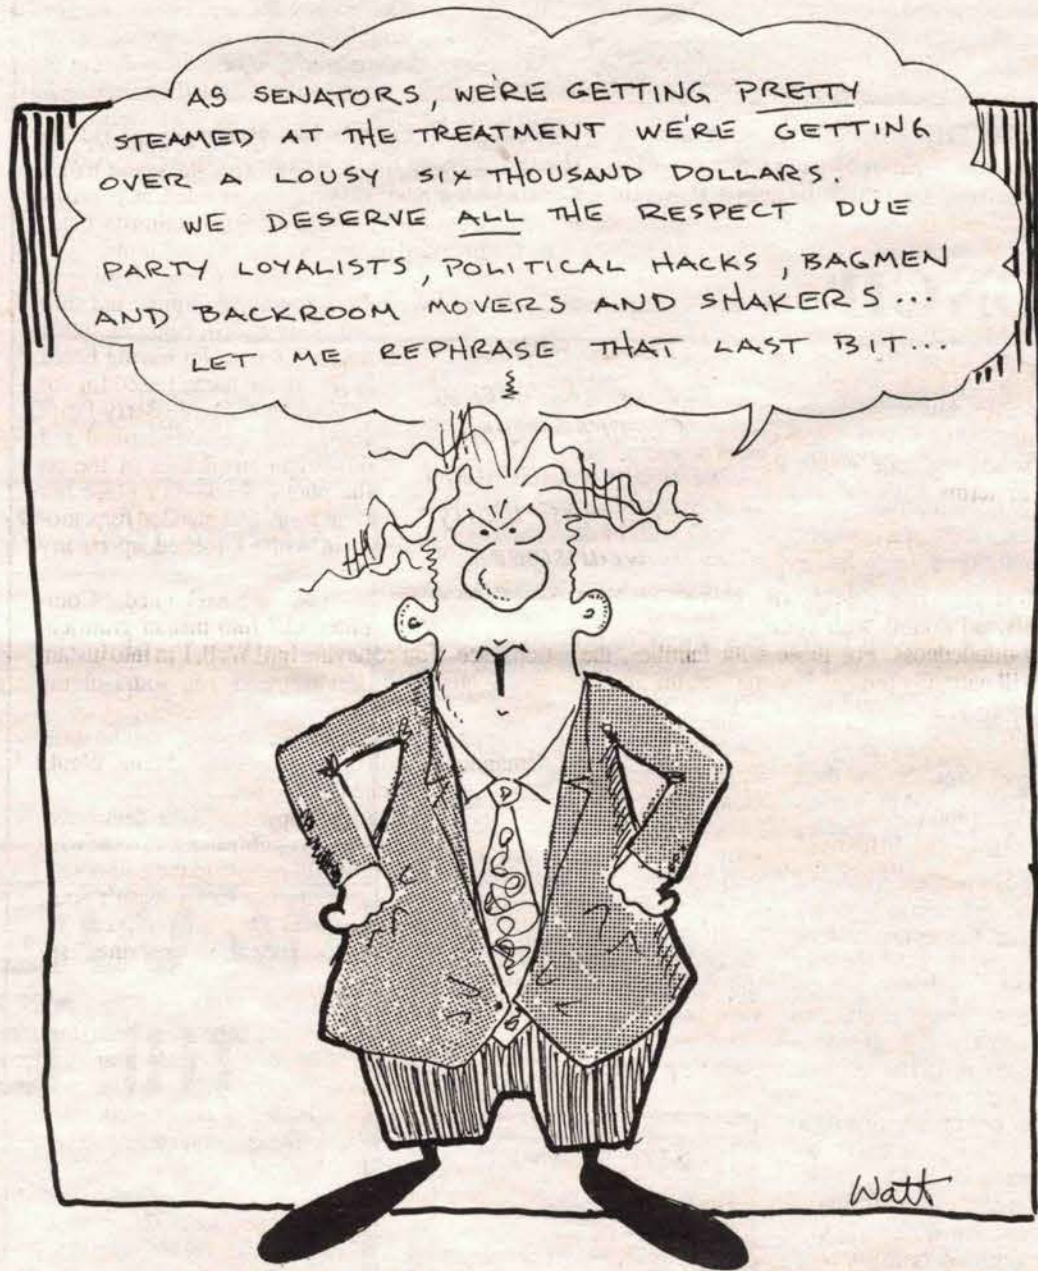 AS SENATORS, WE'RE GETTING PRETTY
STEAMED AT THE TREATMENT WE'RE GETTING
OVER A LOUSY SIX THOUSAND DOLLARS.
WE DESERVE ALL THE RESPECT DUE
PARTY LOYALISTS, POLITICAL HACKS, BAGMEN
AND BACKROOM MOVERS AND SHAKERS...
LET ME REPHRASE THAT LAST BIT...
Watt